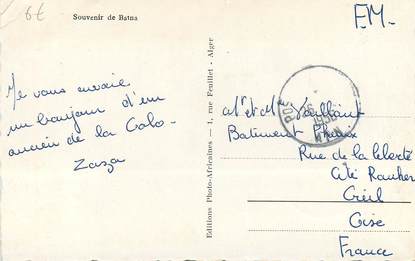 6€
Souvenir de Batna
F.M.
Je vous envoie
un bonjour d'un
ancien de la Colo-
Zaza
Editions Photo-Africaines — 1, rue Feuillet - Alger
Mr et Me Vaillant
Batiment
Rue de la Liberté
Cité Rouher
Creil
Oise
France